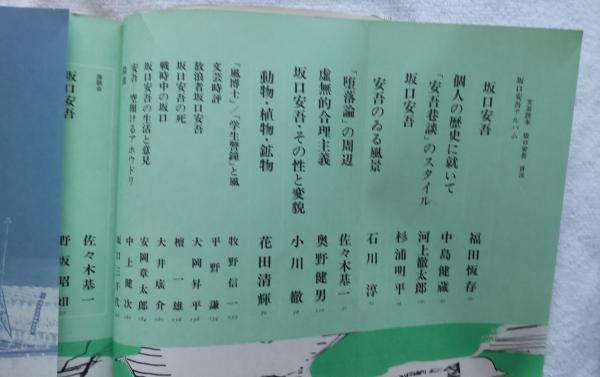 文芸読本 坂口安吾 目次
坂口安吾アルバム
坂口安吾 福田恆存
個人の歴史に就いて 中島健蔵
「安吾巷談」のスタイル 河上徹太郎
坂口安吾 杉浦明平
安吾のゐる風景 石川淳
「堕落論」の周辺 佐々木基一
虚無的合理主義 奥野健男
坂口安吾・その性と変貌 小川徹
動物・植物・鉱物 花田清輝
『風博士』/『学生警鐘』と風 牧野信一
文芸時評 平野謙
放浪者坂口安吾 大岡昇平
坂口安吾の死 檀一雄
戦時中の坂口 大井広介
坂口安吾の生活と意見 安岡章太郎
安吾 空翔けるアホウドリ 中上健次
坂口三千代
座談会
坂口安吾 佐々木基一
野坂昭如